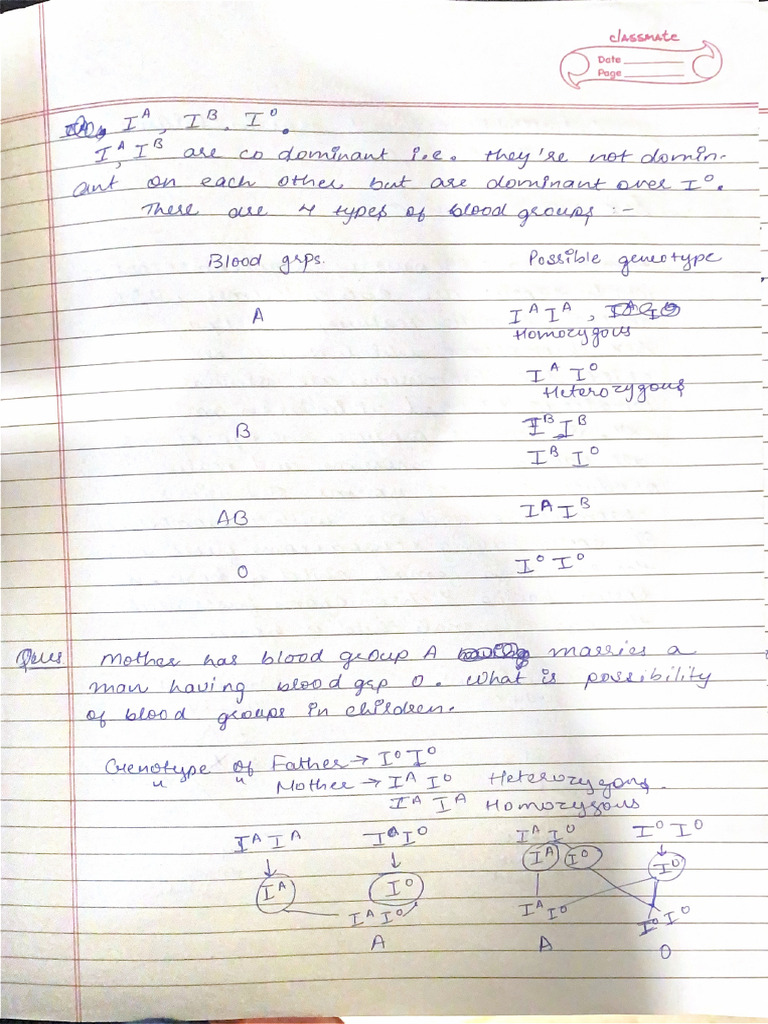 classmate
Date
Page
I^A, I^B, I^O.
I^A, I^B are co dominant i.e. they're not domin-
ant on each other but are dominant over I^O.
There are 4 types of blood groups :-
Blood grps. Possible geneotype
A I^A I^A ,
Homozygous
I^A I^O
Heterozygous
B I^B I^B
I^B I^O
AB I^A I^B
O I^O I^O
Ques Mother has blood group A marries a
man having blood grp O. What is possibility
of blood groups in children.
Genotype of Father → I^O I^O
" " Mother → I^A I^O Heterozygous.
I^A I^A Homozygous
I^A I^A I^O I^O I^A I^O I^O I^O
I^A I^O I^A I^O I^O
I^A I^O I^A I^O I^O I^O
A A O